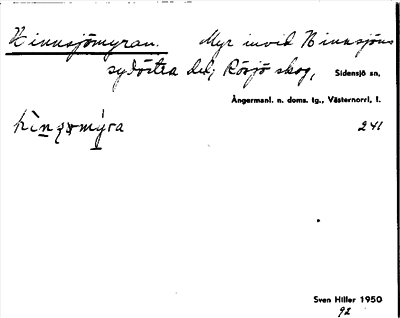 Hinnsjömyran. Myr invid Hinnsjöns
sydöstra del; Rösjö skog, Sidensjö sn,
Ångermanl. n. doms. tg., Västernorrl. l.
241
Sven Hiller 1950
92